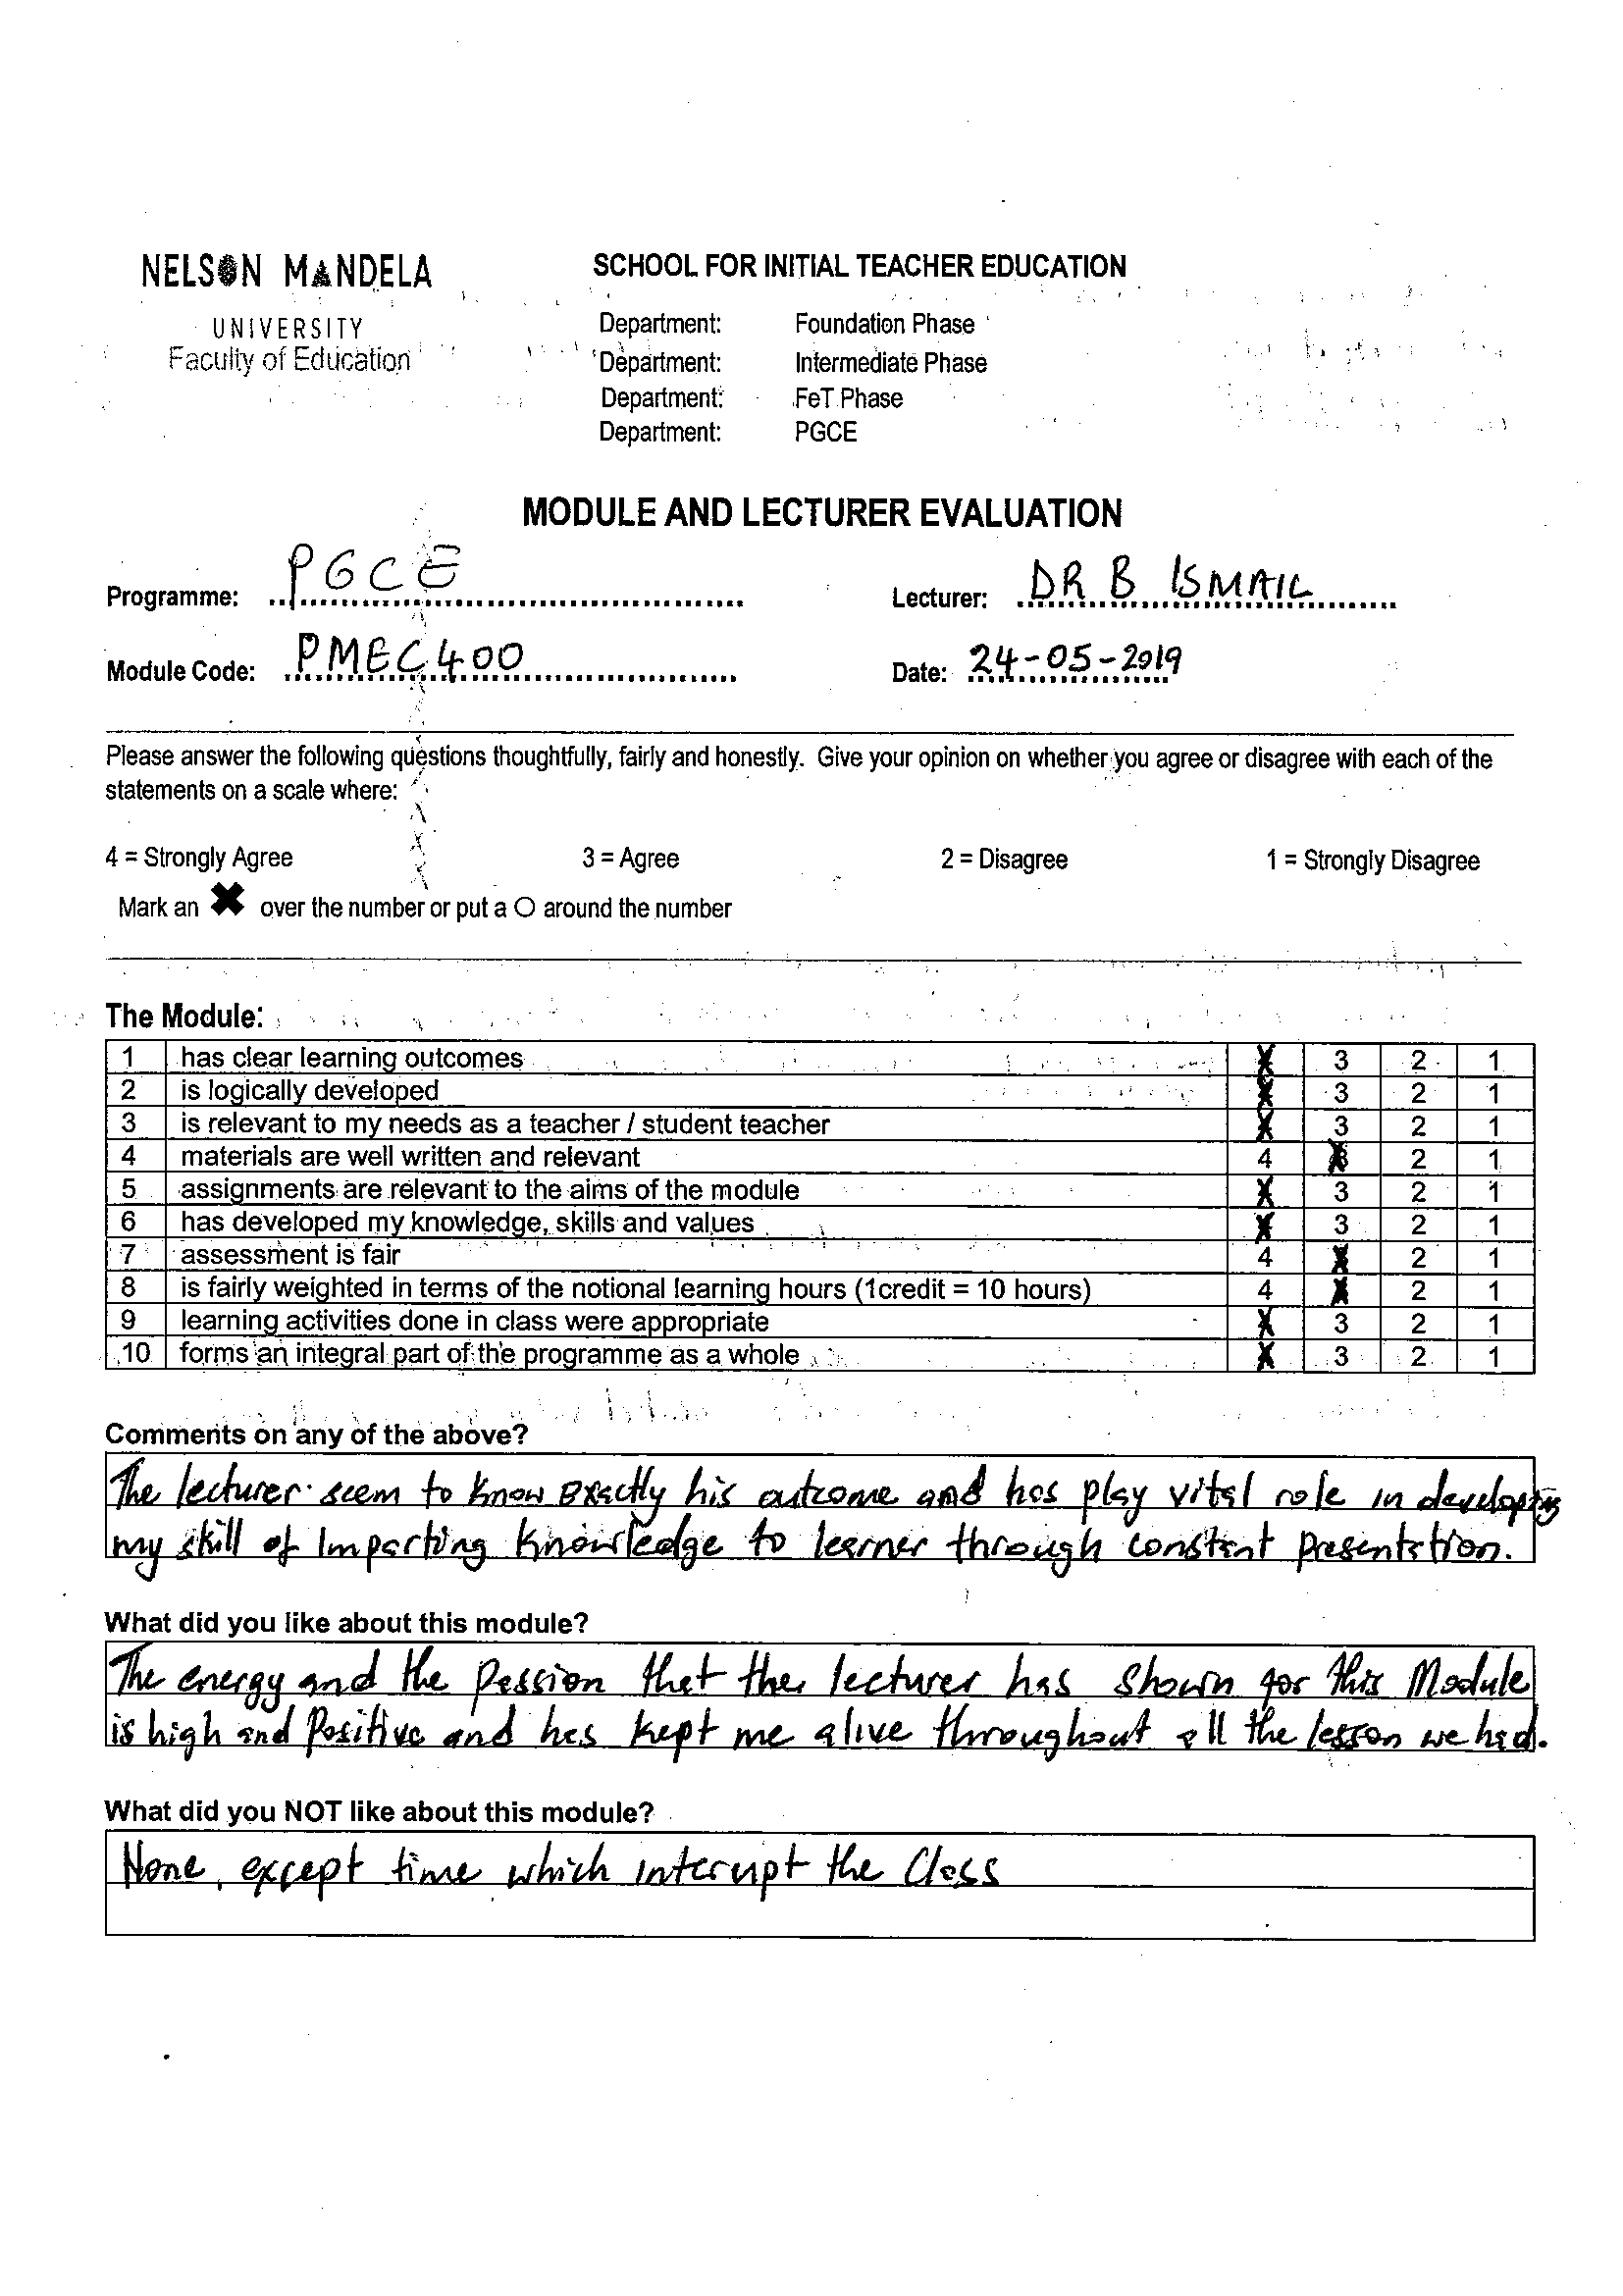 NELSON MANDELA
UNIVERSITY
Faculty of Education
SCHOOL FOR INITIAL TEACHER EDUCATION
Department: Foundation Phase
Department: Intermediate Phase
Department: FeT Phase
Department: PGCE
MODULE AND LECTURER EVALUATION
Programme: PGCE Lecturer: DR B ISMAIL
Module Code: PMEC400 Date: 24-05-2019
Please answer the following questions thoughtfully, fairly and honestly. Give your opinion on whether you agree or disagree with each of the
statements on a scale where:
4 = Strongly Agree 3 = Agree 2 = Disagree 1 = Strongly Disagree
Mark an ✖ over the number or put a O around the number
The Module:
1 has clear learning outcomes X 3 2 1
2 is logically developed X 3 2 1
3 is relevant to my needs as a teacher / student teacher X 3 2 1
4 materials are well written and relevant 4 X 2 1
5 assignments are relevant to the aims of the module X 3 2 1
6 has developed my knowledge, skills and values X 3 2 1
7 assessment is fair 4 X 2 1
8 is fairly weighted in terms of the notional learning hours (1credit = 10 hours) 4 X 2 1
9 learning activities done in class were appropriate X 3 2 1
10 forms an integral part of the programme as a whole X 3 2 1
Comments on any of the above?
The lecturer seem to know Exactly his outcome and has play vital role in developing
my skill of Imparting knowledge to learner through constant presentation.
What did you like about this module?
The energy and the Passion that the lecturer has shown for this Module
is high and Positive and has kept me alive throughout all the lesson we had.
What did you NOT like about this module?
None, except time which interupt the Class